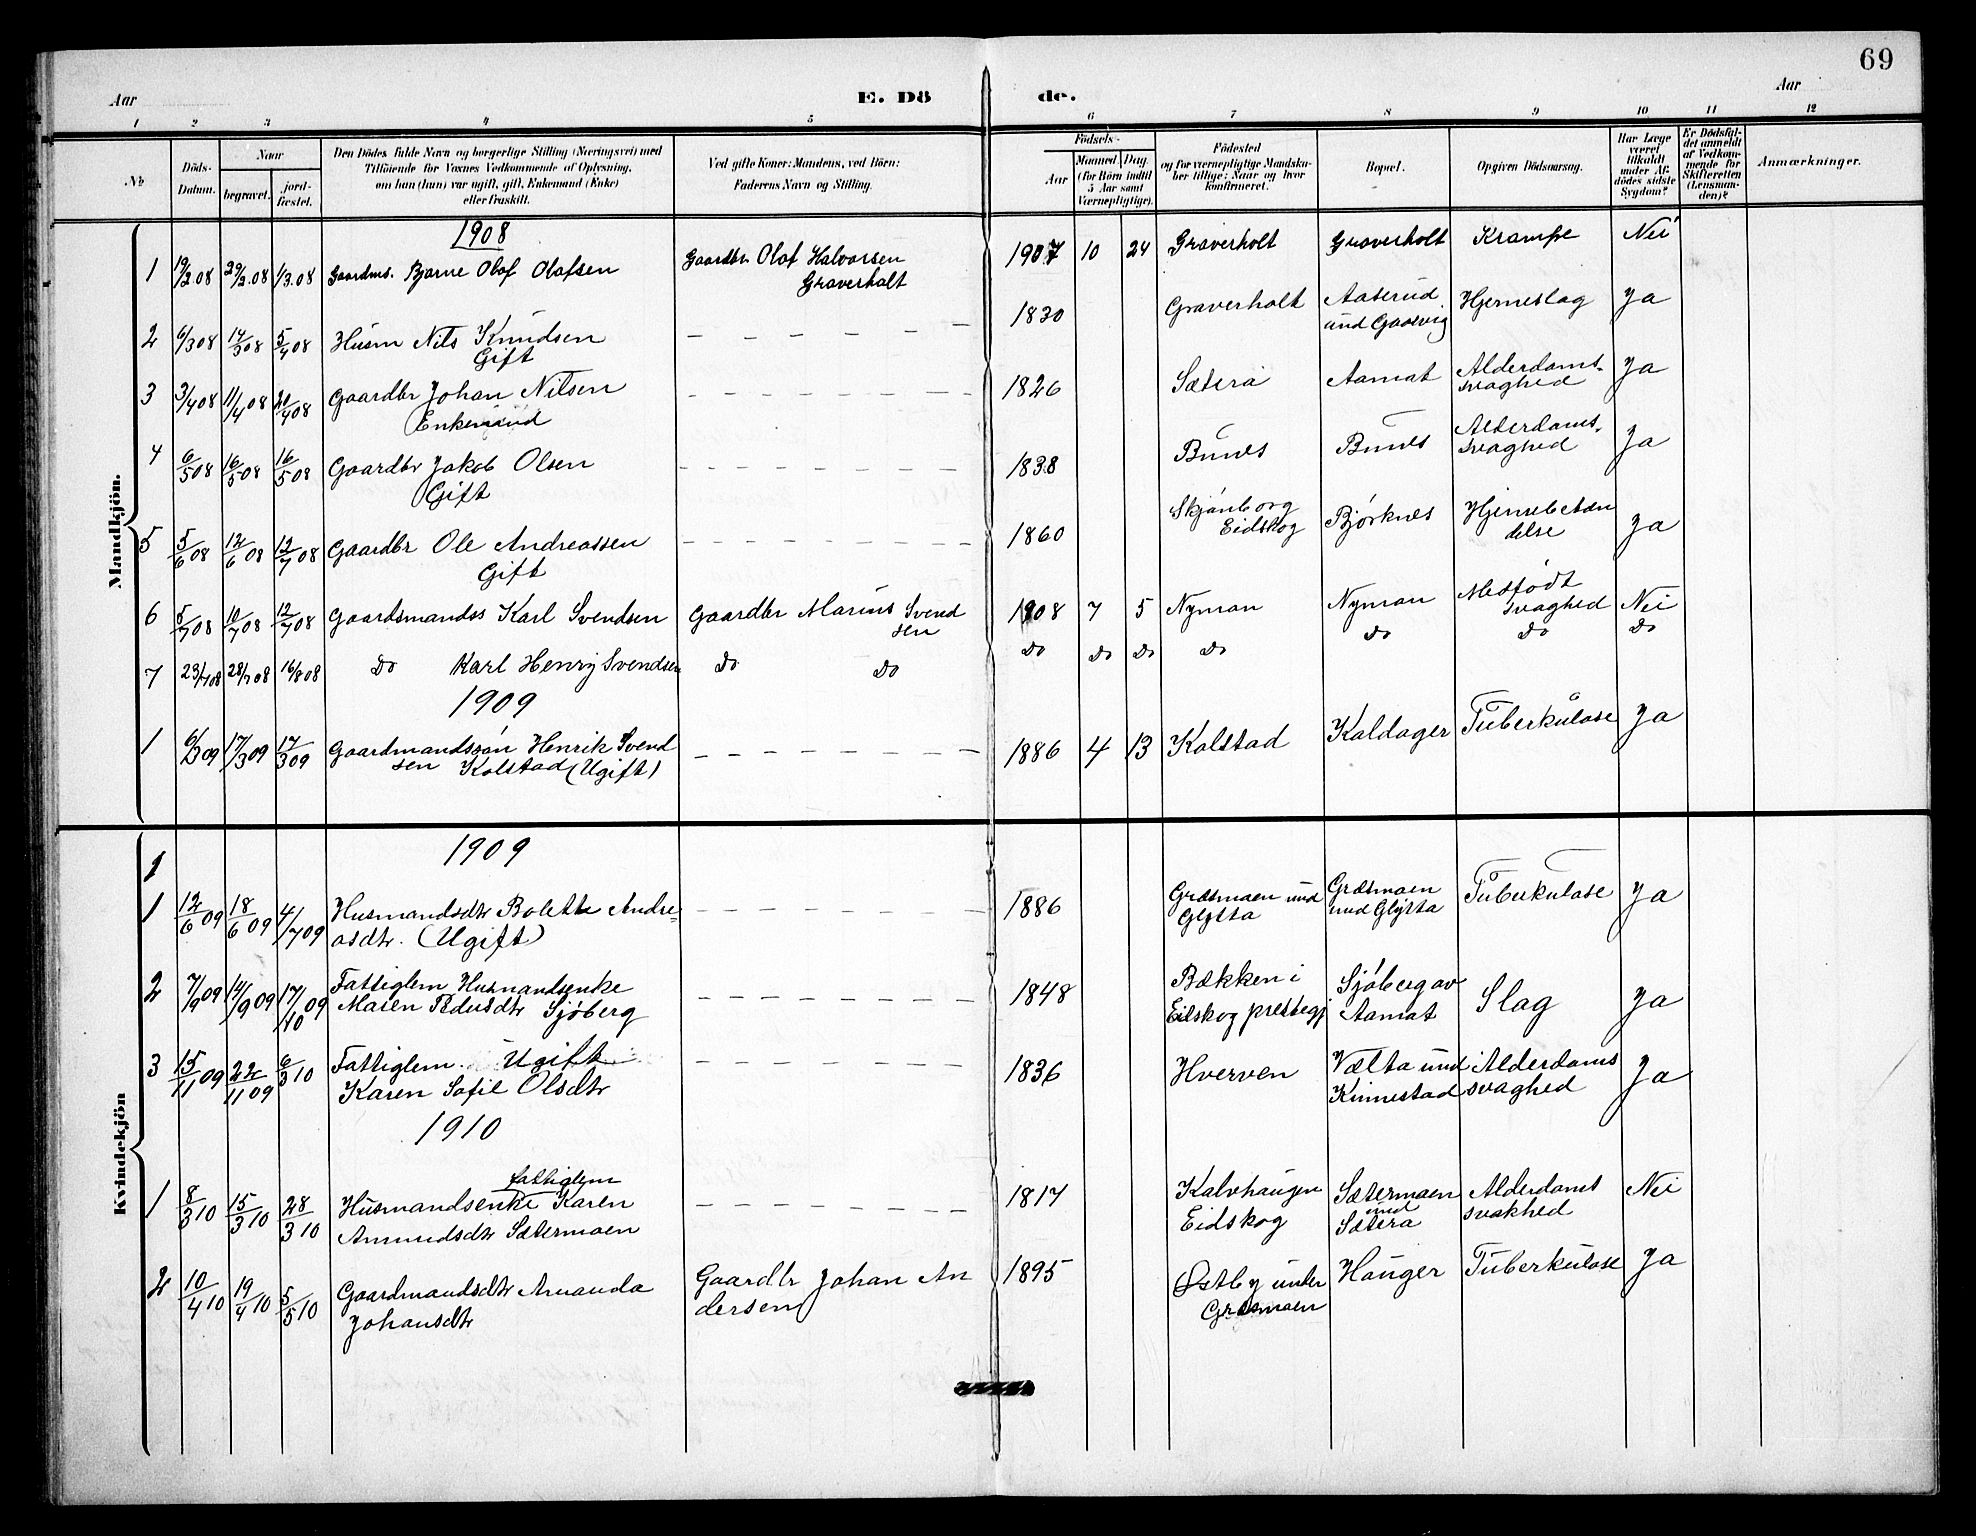 69
Aar
E. Dö
de.
Aar
1 2 3 4 5 6 7 8 9 10 11 12
No
Döds-Datum.
Naar
begravet.
jord-fæstet.
Den Dödes fulde Navn og borgerlige Stilling (Næringsvei) med
Tilföiende for Voxnes Vedkommende af Oplysning,
om han (hun) var ugift, gift, Enkemand (Enke)
eller fraskilt.
Ved gifte Koner: Mandens, ved Börn:
Faderens Navn og Stilling.
Födsels-
Aar
Maaned Dag.
(for Börn indtil
5 Aar samt
Værnepligtige).
Födested
og for værnepligtige Mandsku-
ber tillige: Naar og hvor
konfirmeret.
Bopæl.
Opgiven Dödsaarsag.
Har Læge
været
tilkaldt
under Af-
dödes sidste
Sygdom?
Er Dödsfal-
det anmeldt
af Vedkom-
mende for
Skifteretten
(Lensman-
den)?
Anmærkninger.
Mandkjön.
1908
1 19/2.08 29/2.08 1/3.08 Gaardms. Bjarne Olaf Olafsen Gaardbr. Olaf Halvorsen 1907 10 24 Graverholt Graverholt Krampe Nei
Graverholt
2 6/3 08 14/3 08 5/4 08 Husm Nils Knudsen — — — — — — 1830 Graverholt Aaserud Hjerneslag Ja
Gift und Gaasvig
3 3/4 08 11/4 08 20/4 08 Gaardbr Johan Nilsen — — — — — — 1826 Sætera Aamot Alderdoms- Ja
Enkemand svaghed
4 6/5 08 16/5 08 16/5 08 Gaardbr Jakob Olsen — — — — — — 1838 Bunes Bunes Alderdoms- Ja
Gift svaghed
5 5/6 08 12/6 08 12/7 08 Gaardbr Ole Andreassen — — — — — — 1860 Skjønborg Bjørknes Hjernebetæn Ja
Gift Eidskog delse
6 5/7 08 10/7 08 12/7 08 Gaardsmandss Karl Svendsen Gaardbr Marius Svend 1908 7 5 Nyman Nyman Medfødt Nei
sen svaghed
7 23/7 08 28/7 08 16/8 08 Do Karl Henry Svendsen Do Do Do Do Do Do Do Do Do
1909
1 6/3 09 17/3 09 17/3 09 Gaardmandssøn Henrik Svend — — — — — — 1886 4 13 Kolstad Kaldager Tuberkulose Ja
sen Kolstad (Ugift)
Kvindekjön
1909
1
1 12/6 09 18/6 09 4/7 09 Husmandsdtr Bolette Andre- — — — — — — 1886 Græsmoen und Græsmoen Tuberkulose Ja
asdtr. (Ugift) Glysta und Glysta
2 7/9 09 14/9 09 17/10 09 Fattiglem Husmandsenke — — — — — — 1848 Bækken i Sjøberg av Slag Ja
Maren Pedersdtr Sjøberg Eidskog prestegj Aamot
3 15/11 09 22/11 09 6/3 10 Fattiglem Ugift — — — — — — 1836 Hverven Vælta und Alderdoms Ja
Karen Sofie Olsdtr Kinnestad svaghed
1910
fattiglem
1 8/3 10 15/3 10 28/3 10 Husmandsenke Karen — — — — — — 1817 Kalvhaugen Sætermoen Alderdoms Nei
Amundsdtr Sætermoen Eidskog und Sætera svakhed
2 10/4 10 19/4 10 5/5 10 Gaardmandsdtr Amanda Gaardbr Johan An 1895 Østby under Hauger Tuberkulose Ja
Johansdtr dersen Græsmoen